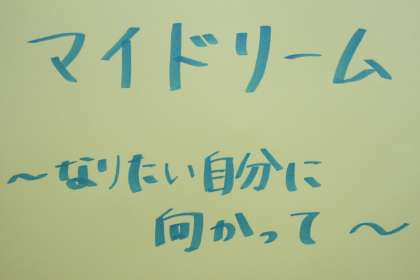 マイドリーム
～なりたい自分に
向かって～